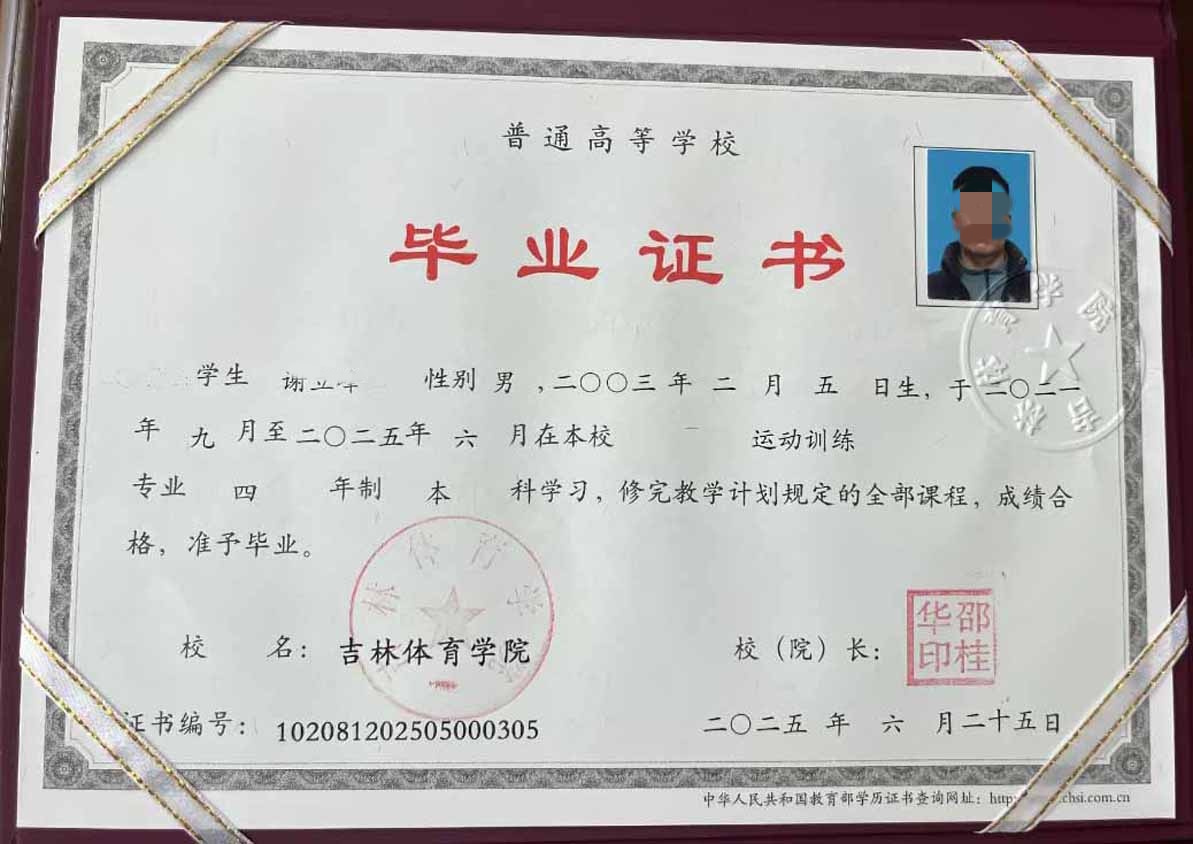 普通高等学校
毕业证书
学生 谢 性别 男 ,二〇〇三 年 二 月 五 日生, 于 二〇二一
年 九 月至 二〇二五年 六 月在本校 运动训练
专业 四 年制 本 科学习, 修完教学计划规定的全部课程, 成绩合
格, 准予毕业。
校 名: 吉林体育学院
校（院）长:
邵桂
华印
证书编号: 102081202505000305
二〇二五 年 六 月二十五日
中华人民共和国教育部学历证书查询网址: chsi.com.cn